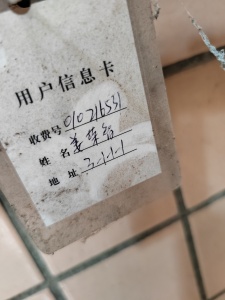 用户信息卡
收费号 010216531
姓名 姜
地址 2-1-1-1